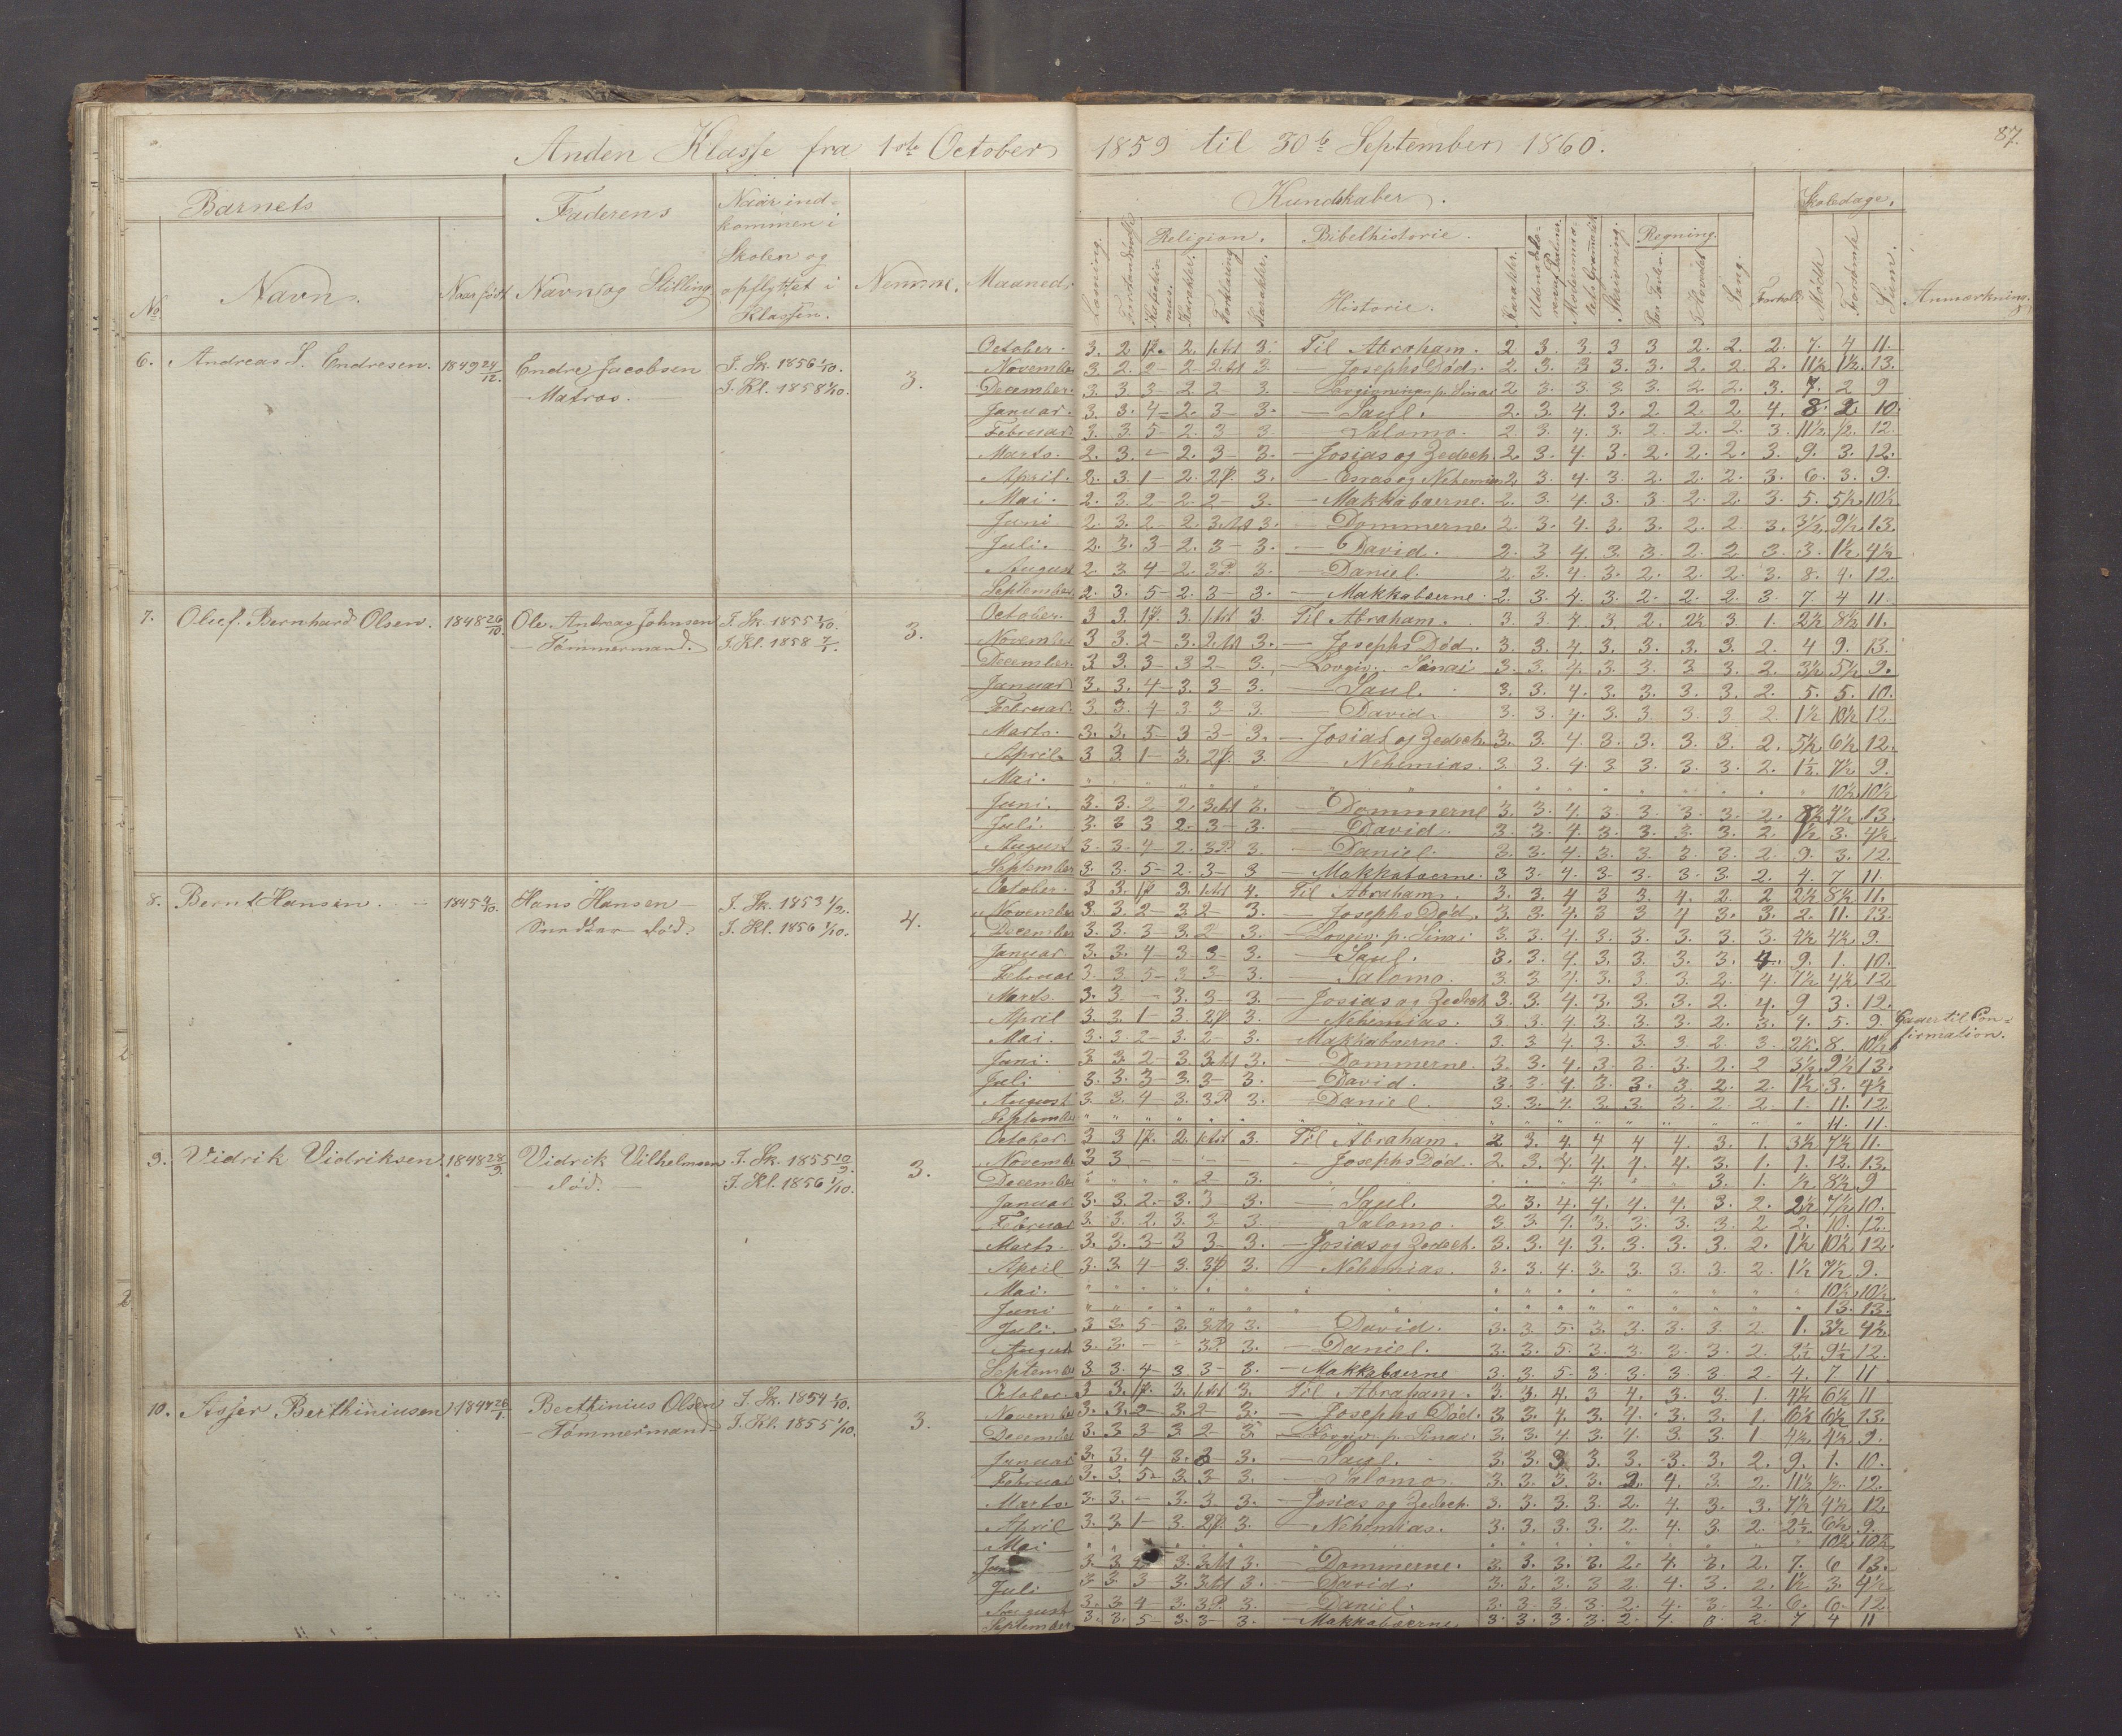 Anden Klasse fra 1ste October 1859 til 30te September 1860.
87.
Barnets
Faderens
Naar ind-
kommen i
Skolen og
opflyttet i
Klassen.
Kundskaber.
Skoledage.
No.
Navn.
Naar født
Navn og Stilling
Nemme.
Maaned.
Læsning.
Religion.
Bibelhistorie.
Karakter.
Forklaring
Karakter.
Historie.
Karakter.
Skrivning.
Regning.
Paa Tavlen.
I Hovedet
Sang.
Forhold.
Mødte
Forsømte
Sum.
Anmærkning.
6. Andreas S. Endresen. 1849 24/12. Endre Jacobsen I. Sk. 1856 1/10. 3.
Matros. I. Kl. 1858 1/10.
October. 3. 2. 1 p. 2. 1 Art 3. Til Abraham. 2. 3. 3. 3 3 2. 2. 2. 7. 4 11.
November 3. 2. 2 - 2 - 2 Art 3 — Josephs Død. 2. 3. 3 3. 3. 2. 2. 2. 11½ 1½ 13.
December. 3. 3. 3 - 2 2 - 3. — Lovgivningen p. Sinai 2. 3. 3. 3. 3. 2. 2. 3. 7. 2 9
Januar. 3. 3. 4 - 2. 3 - 3. — Saul. 2. 3. 4. 3. 2. 2. 2. 4. 8. 2. 10.
Februar. 3. 3. 5 - 2. 3 - 3. — Salomo. 2. 3. 4. 3. 2. 2. 2. 3. 11½ ½. 12.
Marts. 2. 3. - 2. 3 - 3. — Josias og Zedech. 2. 3. 4. 3. 2. 2. 2. 3. 9. 3. 12.
April. 2. 3. 1 - 2. 2 P. 3. — Esras og Nehemias 2. 3. 4. 3. 2. 2. 2. 3. 6. 3. 9.
Mai. 2. 3. 2 - 2. 2 - 3. — Makkabæerne. 2. 3. 4. 3. 3 2. 2. 3. 5. 5½ 10½
Juni 2. 3. 2 - 2. 3 Art 3. — Dommerne 2. 3. 4. 3. 3. 2. 2. 3. 3½ 9½ 13.
Juli. 2. 3. 3 - 2. 3 - 3. — David. 2. 3. 4. 3. 3. 2. 2. 3. 3. 1½ 4½
August 2. 3. 4 - 2. 3 P. 3. — Daniel. 2. 3. 4. 3. 2. 2. 2. 3. 8. 4. 12.
September. 2. 3. 5 - 2. 3 - 3. — Makkabæerne. 2. 3. 4. 3. 2. 2. 2. 3. 7 4 11.
7. Oluf. Bernhard Olsen. 1848 26/10. Ole Andreas Johnsen I. Sk. 1855 3.
— Tømmermand. I. Kl. 1858
October. 3 3. 1 p. 3. 1 Art 3 Til Abraham. 3. 3. 4. 3. 2. 2½ 3. 1. 2½ 8½ 11.
November 3 3. 2 - 3. 2 Art 3. — Josephs Død. 3. 3. 4. 3. 3. 3. 3. 2. 4 9. 13.
December. 3 3. 3 - 3 2 - 3. — Lovgiv. Sinai 3. 3. 4. 3. 3. 3. 3. 2. 3½ 5½ 9.
Januar 3. 3. 4 - 3. 3 - 3. — Saul. 3. 3. 4. 3. 3. 3. 3. 2. 5. 5. 10.
Februar. 3 3. 4 - 3 3 - 3. — David. 3. 3. 4. 3. 3. 3. 3. 2. 1½ 10½ 12.
Marts. 3. 3. 5 - 3 3 - 3. — Josias og Zedech. 3. 3. 4. 3. 3. 3. 3. 2. 5½ 6½ 12.
April 3 3. 1 - 3. 2 P. 3. — Nehemias. 3. 3. 4. 3 3. 3. 3. 2. 1½. 7½ 9.
Mai. 10½ 10½
Juni. 3. 3. 2 - 2. 3 Art 3. — Dommerne 3. 3. 4. 3. 3. 3. 3. 2. 8½ 4½ 13.
Juli. 3. 3 3 2. 3 - 3. — David. 3. 3. 4. 3. 3. 3. 3. 2. 1½ 3. 4½
August 3. 3. 4 - 2. 3 P. 3. — Daniel. 3. 3. 4. 3. 3. 3. 3. 2. 9. 3. 12.
September 3 3. 5 - 2. 3 - 3 — Makkabæerne. 3. 3. 4. 3. 3. 3. 3 2. 4. 7 11.
8. Bernt Hansen. 1845 9/10. Hans Hansen I. Sk. 1853 4.
død. I. Kl. 1856 1/10.
October. 3 3. 1 p. 3. 1 Art 4. Til Abraham. 3. 3. 4 3 3 4. 2 2 2½ 8½ 11.
November 3 3. 2 - 3. 2 - 3. — Josephs Død. 3. 3. 4. 3 3 4 3. 3. 2. 11. 13.
December 3. 3. 3 - 3. 2 - 3. — Lovgiv. p. Sinai 3. 3. 4. 3. 3. 3. 3. 3. 4½ 4½ 9.
Januar 3. 3. 4 - 3 3 - 3. — Saul. 3. 3. 4. 3. 3. 3. 3. 4. 9. 1. 10.
Februar 3. 3 5 - 3 3 - 3. — Salomo. 3. 3. 4. 3. 3. 3. 2. 4. 4½ 12
Marts. 3. 3. — 3. 3 - 3. — Josias og Zedech. 3. 3. 4. 3. 3. 3. 2. 4. 9 3. 12.
April 3. 3. 1 - 3. 2 P 3. — Nehemias. 3. 3. 4. 3. 3. 3. 2. 3. 4. 5. 9. Gaaer til Con-
Mai. 3. 3. 2 - 3. 2 - 3. Makkabæerne. 3. 3. 4. 3. 3. 3. 2. 3. 2½. 8. 10½ firmation.
Juni. 3. 3. 2 - 3 3 Art 3. — Dommerne. 3. 3. 4. 3. 3. 3. 2. 2 3½ 9½ 13.
Juli 3. 3. 3 - 3. 3 - 3. — David. 3. 3. 4. 3. 3. 3. 2. 2. 1½ 3. 4½
August 3. 3. 4 - 3. 3 P. 3. — Daniel. 3. 3. 4. 3. 3. 3. 2. 2. 1. 11. 12.
September 11.
9. Vidrik Vidriksen. 1848 28/9. Vidrik Vilhelmsen I. Sk. 1855 3.
— død. — I. Kl. 1856 1/10.
October. 3 3 1 p. 2. 1 Art 3. Til Abraham. 2 3. 4. 4 4 4. 3. 1. 3½ 7½ 11.
November 3 3. — Josephs Død. 2. 3. 4. 4. 4. 4. 3. 1. 1. 12. 13.
December 2 - 3. 4. 3. 1. ½. 8½ 9
Januar 3. 3. 2 - 3. 3 3. — Saul. 2 3. 4. 4. 4. 4. 3. 2. 2½ 7½ 10.
Februar 3. 3. 2. 3. 3 - 3. — Salomo. 3. 3. 4. 3. 3. 3. 3. 2 2. 10. 12.
Marts. 3. 3. 3 - 3 3 - 3. — Josias og Zedech. 3. 3. 4. 3. 3. 3. 3. 2. 1½ 10½ 12.
April 3. 3. 4 - 3. 3 P 3. — Nehemias. 3. 3. 4. 3. 3. 3. 3. 2. 1½ 7½ 9.
Mai. 10½ 10½
Juni 13. 13.
Juli. 3 3. 5 - 3. 3 Art 3. — David. 3. 3. 5. 3. 3. 3. 3. 2. 1. 3½ 4½
August 3. 3. — 3 P. 3. — Daniel. 3. 3. 5. 3. 3. 3. 3. 2. 2½ 9½ 12.
September 3 3. 4 - 3 3 - 3. — Makkabæerne 3. 3. 5. 3. 3. 3. 3. 2. 4. 7 11
10. Asser Berthiniusen. Berthinius Olsen I. Sk. 1854 1/10. 3.
— Tømmermand — I. Kl. 1855 1/10.
October. 3 3. 1 p. 3. 1 Art 3. Til Abraham. 3. 3. 4. 3 4. 3. 3 1. 4½ 6½ 11
November 3. 3. 2 - 3. 2 - 3. — Josephs Død. 3. 3. 4. 3. 4. 3. 3. 1. 6½ 6½ 13.
December 3. 3 3 - 3 2 - 3. — Lovgiv. p. Sinai. 3. 3. 4. 3. 4. 3. 3. 1 4½ 4½ 9.
Januar 3. 3. 4 3. 3 - 3. — Saul. 3. 3. 3 3. 3. 3. 3. 2. 9. 1. 10.
Februar 3. 3. 5 - 3. 3 - 3. — Salomo 3. 3. 3. 3. 2. 4. 3. 2. 11½ ½. 12.
Marts. 3. 3. - 3. 3. 3. — Josias og Zedech. 3. 3. 3. 3. 2. 4. 3. 3. 7½ 4½ 12.
April 3. 3. 1 - 3. 2 P. 3. — Nehemias. 3. 3. 3. 3. 2. 4. 3. 2. 2½ 6½ 9.
Mai 10½ 10½
Juni 3. 3. 2 - 3. 3 Art 3. — Dommerne. 3. 3. 3. 3. 2. 4. 3. 2. 7. 6 13.
Juli 3. 3. 3 - 3. 3 Art 3. — David. 3. 3. 3. 3 2. 4. 3. 2. 1½ 3. 4½
August 3. 3. 4 - 3. 3 P. 3. — Daniel. 3. 3. 3. 3. 2. 4. 3. 2. 6. 6. 12
September 3. 3. 5 - 3. 3 3. — Makkabæerne 3. 3. 3. 3. 2. 4. 3. 2. 7 4 11